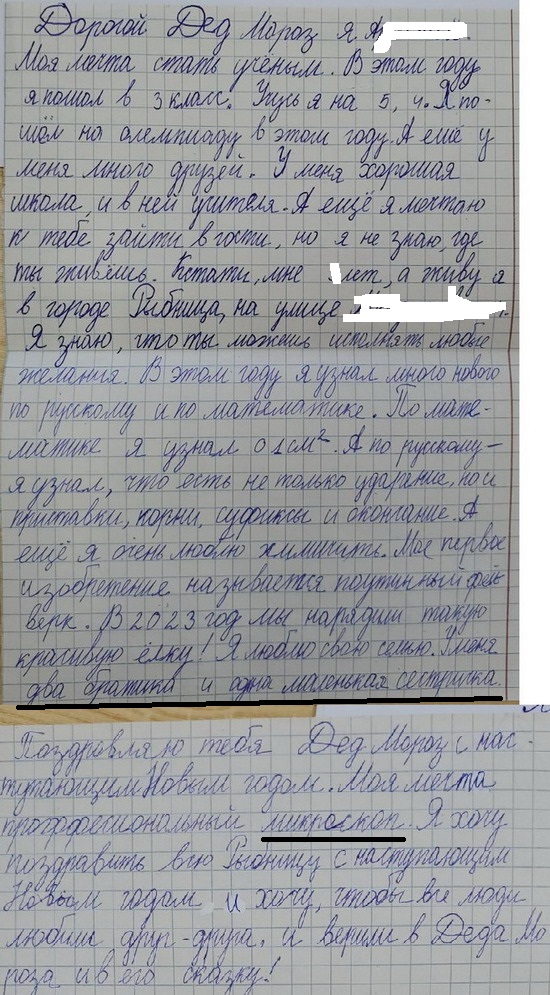 Дорогой Дед Мороз я А
Моя мечта стать учёным. В этом году
я пошол в 3 класс. Учусь я на 5, 4. Я по-
шём на олемпиаду в этом году. А ещё у
меня много друзей. У меня хорошая
школа, и в ней учителя. А ещё я мечтаю
к тебе зайти в гости, но я не знаю, где
ты живёшь. Кстати, мне лет, а живу я
в городе Рыбница, на улице
Я знаю, что ты можешь исполнять любые
желания. В этом году я узнал много нового
по русскому и по математике. По мате-
матике я узнал о 1см². А по русскому –
я узнал, что есть не только ударение, но и
приставки, корни, суфиксы и окончание. А
ещё я очень люблю химичить. Мое первое
изобретение называется паутинный фей-
верк. В 2023 год мы нарядили такую
красивую ёлку! Я люблю свою семью. У меня
два братика и одна маленькая сестричка.
Поздравляю тебя Дед Мороз с нас-
тупающим Новым годом. Моя мечта
профессиональный микроскоп. Я хочу
поздравить всю Рыбницу с наступающим
Новым годом, и хочу, чтобы все люди
любили друг-друга, и верили в Деда Мо
роза и в его сказку!